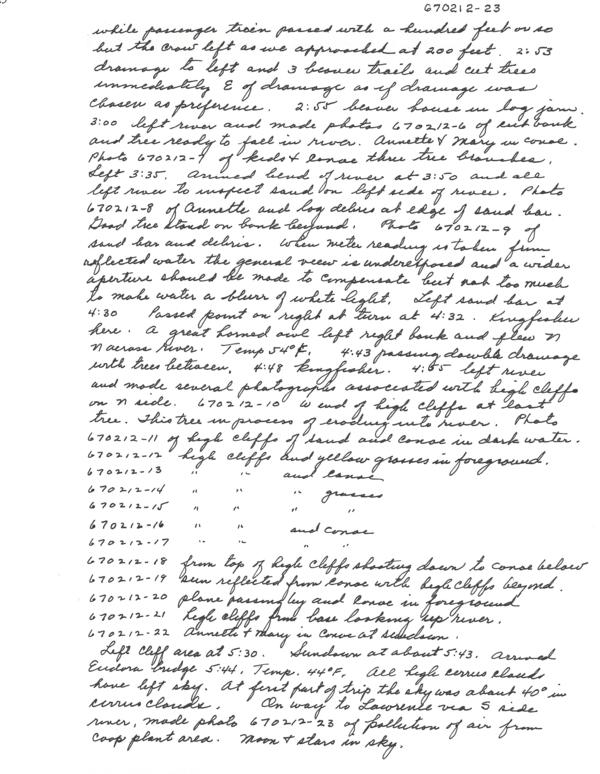 670212-23
while passenger train passed with a hundred feet or so
but the crow left as we approached at 200 feet. 2:53
drainage to left and 3 beaver trails and cut trees
immediately E of drainage as if drainage was
chosen as preference. 2:55 beaver house in log jam.
3:00 left river and made photos 670212-6 of cut bank
and tree ready to fall in river. Annette & Mary in canoe.
Photo 670212-7 of kids & canoe thru tree branches.
Left 3:35. Arrived bend of river at 3:50 and all
left river to inspect sand on left side of river. Photo
670212-8 of Annette and log debris at edge of sand bar.
Good tree stand on bank beyond. Photo 670212-9 of
sand bar and debris. When meter reading is taken from
reflected water the general view is underexposed and a wider
aperture should be made to compensate but not too much
to make water a blurr of white light. Left sand bar at
4:30 Passed point on right at turn at 4:32. Kingfisher
here. A great horned owl left right bank and flew N
N across river. Temp 54°F. 4:43 passing double drainage
with trees between. 4:48 kingfisher. 4:55 left river
and made several photographs associated with high cliffs
on N side. 670212-10 W end of high cliffs at last
tree. This tree in process of eroding into river. Photo
670212-11 of high cliffs of sand and canoe in dark water.
670212-12 high cliffs and yellow grasses in foreground.
670212-13 " " and canoe
670212-14 " " " grasses
670212-15 " " " "
670212-16 " " and canoe
670212-17 " " " "
670212-18 from top of high cliffs shooting down to canoe below
670212-19 sun reflected from canoe with high cliffs beyond.
670212-20 plane passing by and canoe in foreground
670212-21 high cliffs from base looking up river.
670212-22 Annette & Mary in canoe at sundown.
Left cliff area at 5:30. Sundown at about 5:43. Arrived
Eudora bridge 5:44. Temp. 44°F. All high cirrus clouds
have left sky. At first part of trip the sky was about 40° in
cirrus clouds. On way to Lawrence via S side
river, made photo 670212-23 of pollution of air from
Coop plant area. Moon & stars in sky.